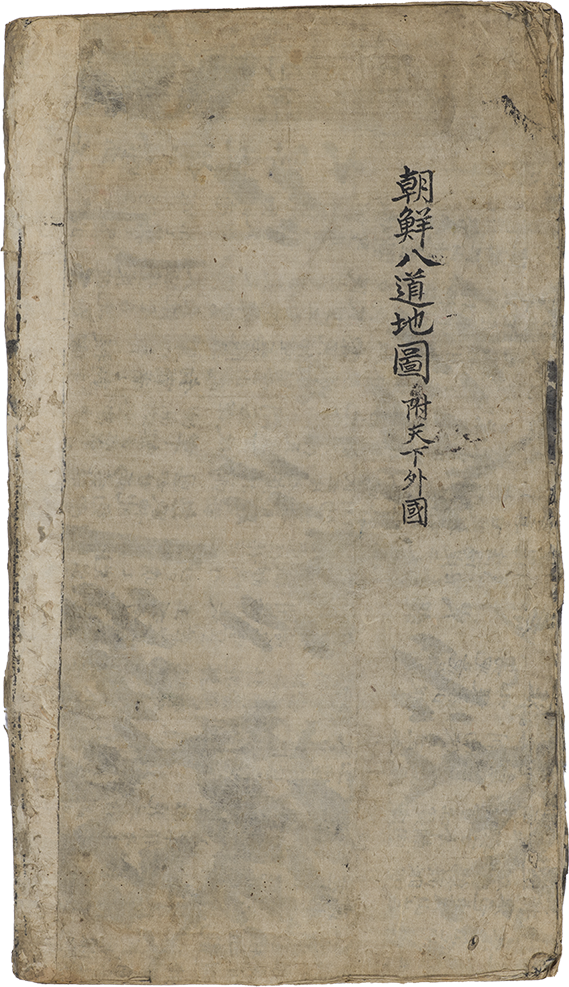 朝鮮八道地圖 附天下外國